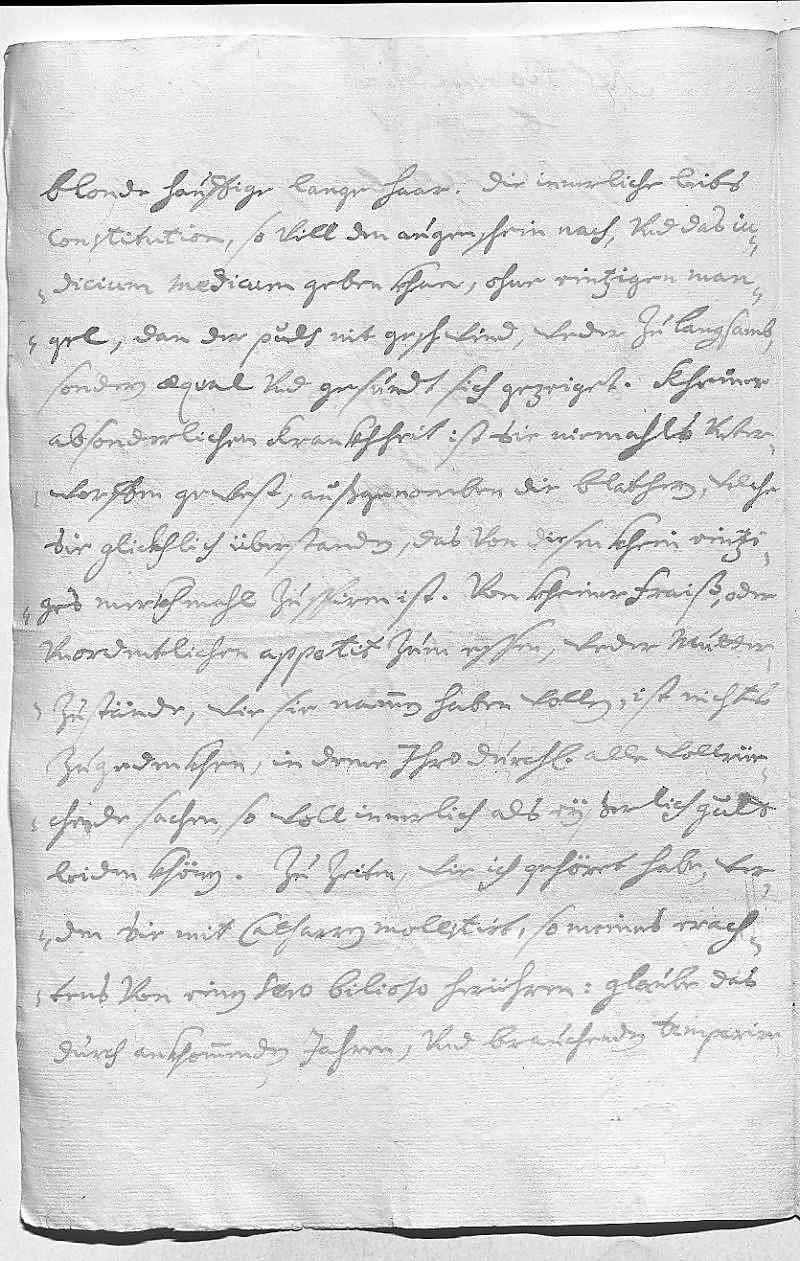 blonde häuffige lange haar. die innerliche leibs
Constitution, so vill den augenschein nach, vnd das iu-
dicium medicum geben khan, ohne eintzigen man-
gel, dan der puls nit geschwind, weder zu langsamb,
sondern æqual vnd gesundt sich gezeiget. Kheiner
absonderlichen Krankhheit ist sie niemahls vnter-
worffen gewest, außgenomben die blathern, welche
sie glickhlich überstanden, das von diesen khein eintzi-
ges merkhmahl zu ist. Von kheiner Fraiß, oder
vnordentlichen appetit zum essen, weder Mutter
Zustände, wie sie namen haben wollen, ist nichts
zugedenkhen, in deme Ihro durchl. alle wollrie-
chende sachen, so woll innerlich als eysserlich guts
leiden khönen. Zu Zeiten, wie ich gehöret habe, wer-
den sie mit Catharren molestirt, so meines erach-
tens von einem sero bilioso herrühren: glaube das
durch ankhommenden Jahren, vnd brauchenden